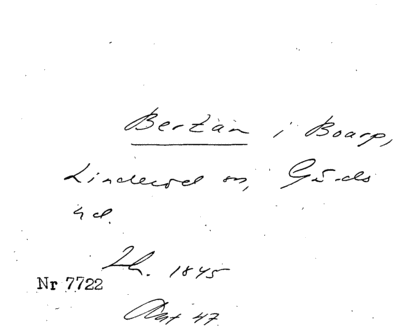 Bertan i Boarp,
Linderöd sn, Gärds
hd.
Lh. 1845
Nr 7722
47